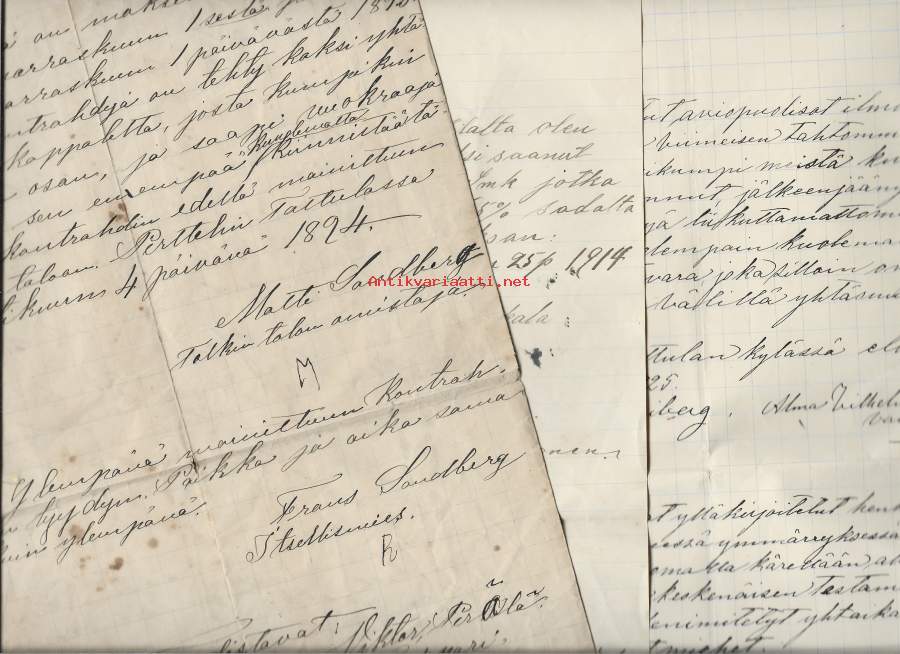 on makset
marraskuun 1 sestä
marraskuun 1 päivävästä 189
ntrahdija on tehty kaksi yhtä
kappaletta, josta kumpikin
osan, ja saapi vuokraaja
kuulematta
sen enempää kiinnistäätä
kontrahdin edellä mainittuun
taloon. Perttelin Tattulassa
ikuun 4 päivänä 1894.
Matte Sandberg
Tolkin talon omistaja.
M
Ylempänä mainittuun Kontrah.
tyydyn. Paikka ja aika sama
kuin ylempänä.
Frans Sandberg
Itsellismies.
R
distavat: Viktor Perälä
dalta olen
si saanut
Smk jotka
5% sadalta
san:
25 p 1914
kala
nen.
ut aviopuolisot ilmo
viimeisen tahtomm
ikumpi meistä ku
nnut, jälkeenjääny
jä liikuttamattom
olempain kuolema
vara, joka silloin on
välillä yhtäsuu
ttulan kylässä el
25.
berg. Alma Vilhel
at ylläkirjoitetut hen
essä ymmärryksessä
omalla kädellään al
keskenäisen testam
enimitetyt yhtaika
t miehet.
Antikvariaatti.net